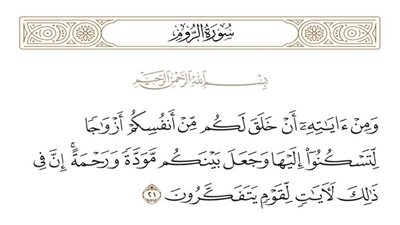 سُورَةُ الرُّومِ
بِسْمِ اللَّهِ الرَّحْمَٰنِ الرَّحِيمِ
وَمِنْ ءَايَٰتِهِۦٓ أَنْ خَلَقَ لَكُم مِّنْ أَنفُسِكُمْ أَزْوَٰجًا
لِّتَسْكُنُوٓا۟ إِلَيْهَا وَجَعَلَ بَيْنَكُم مَّوَدَّةً وَرَحْمَةً ۚ إِنَّ فِى
ذَٰلِكَ لَءَايَٰتٍ لِّقَوْمٍ يَتَفَكَّرُونَ ٢١